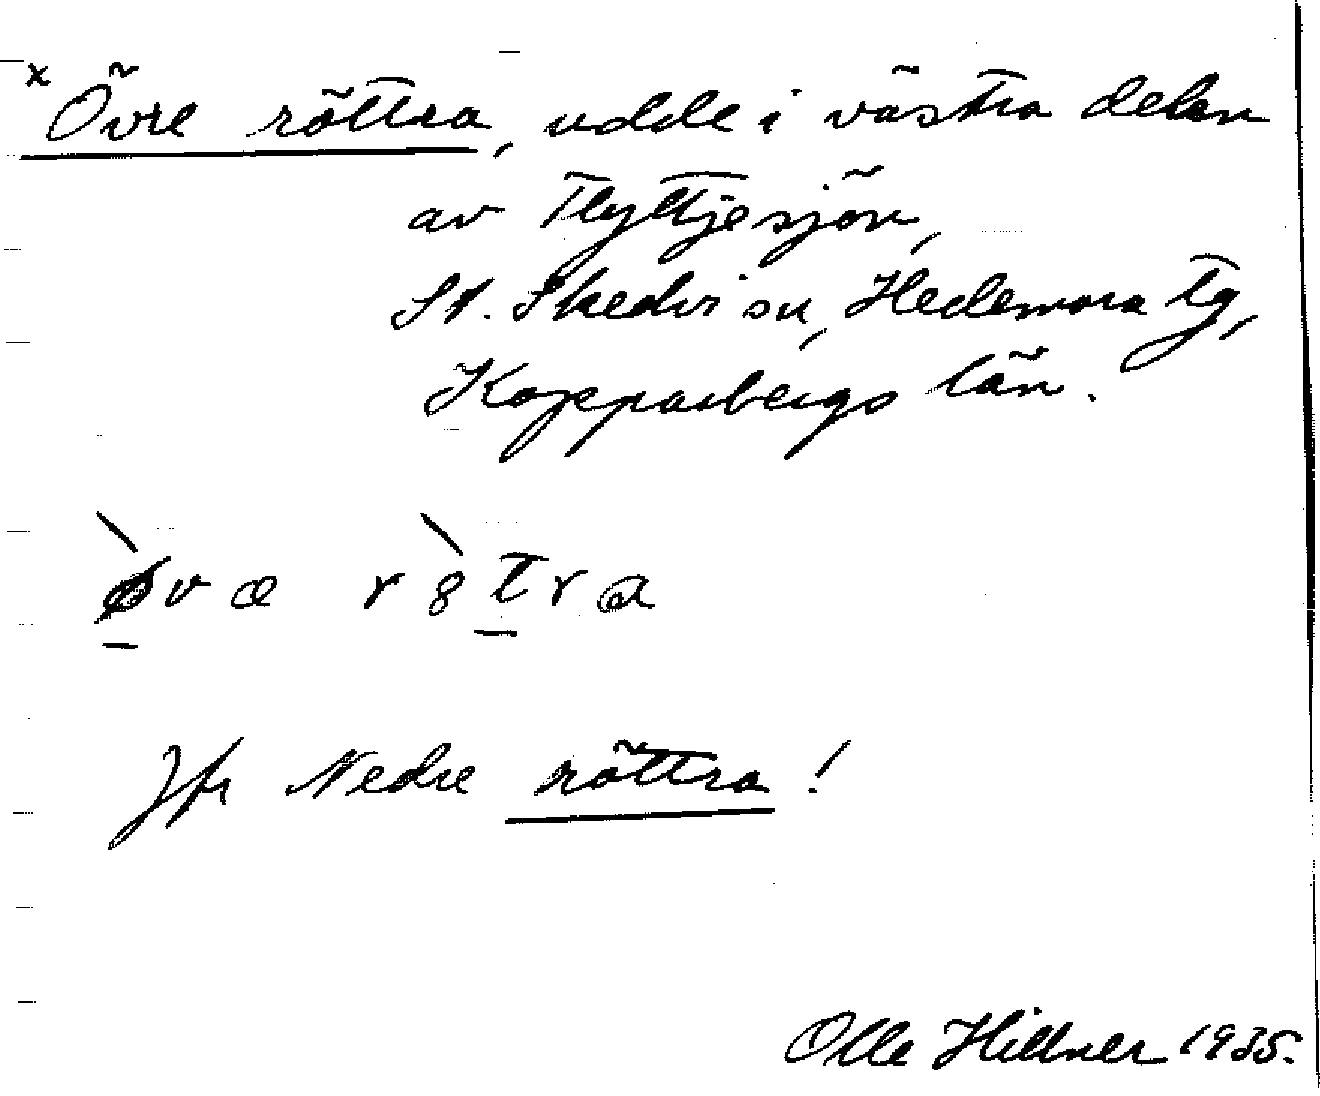 x Övre röttra, udde i västra delen
av Flyttjesjön,
St. Skedvi sn, Hedemora tg,
Kopparbergs län.
Jfr Nedre röttra!
Olle Hillner 1935.